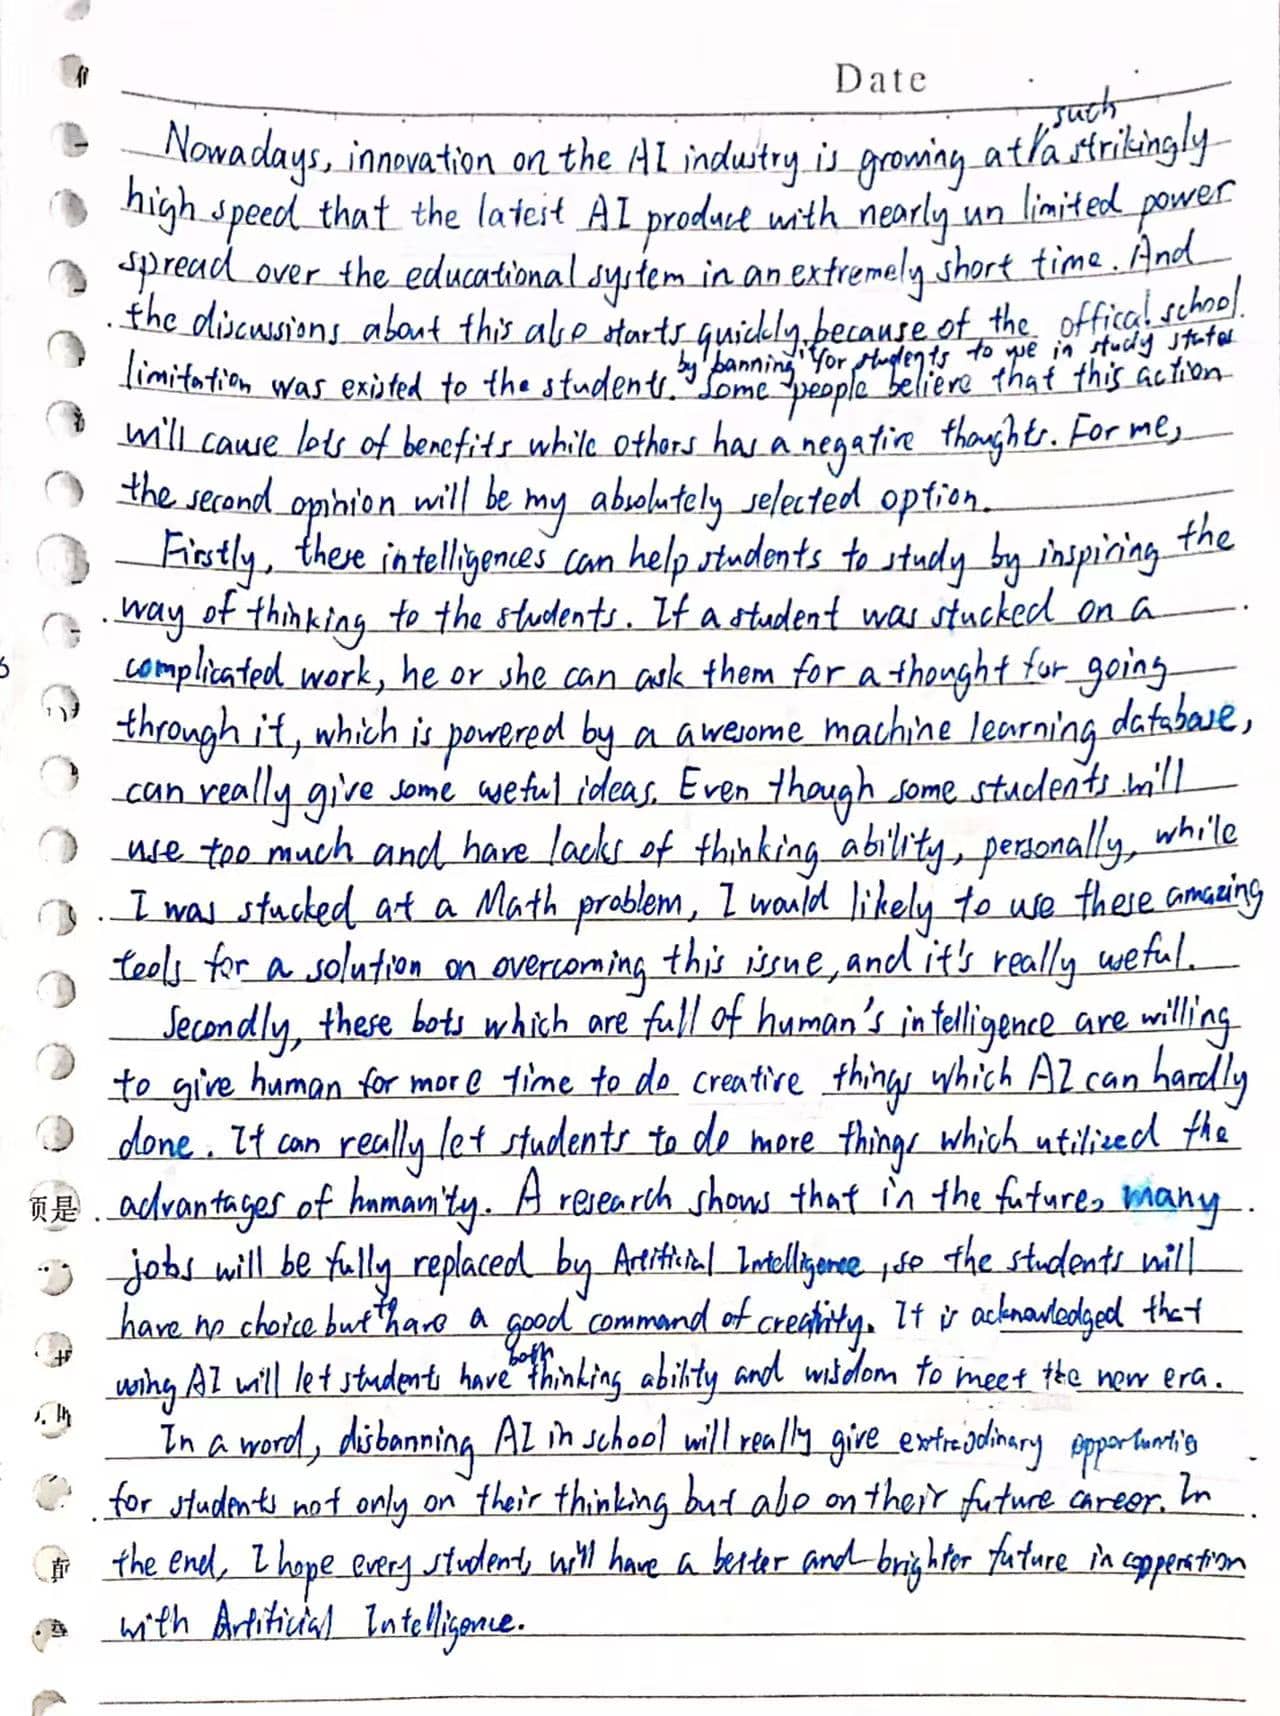 Date
such
Nowadays, innovation on the AI industry is growing at a strikingly
high speed that the latest AI product with nearly un limited power
spread over the educational system in an extremely short time. And
the discussions about this also starts quickly, because of the offical school
by banning it for students to use in study states
limitation was existed to the students. Some people believe that this action
will cause lots of benefits while others has a negative thoughts. For me,
the second opinion will be my absolutely selected option.
Firstly, these intelligences can help students to study by inspiring the
way of thinking to the students. If a student was stucked on a
complicated work, he or she can ask them for a thought for going
through it, which is powered by a awesome machine learning database,
can really give some useful ideas. Even though some students will
use too much and have lacks of thinking ability, personally, while
I was stucked at a Math problem, I would likely to use these amazing
tools for a solution on overcoming this issue, and it's really useful.
Secondly, these bots which are full of human's intelligence are willing
to give human for more time to do creative things which AI can hardly
done. It can really let students to do more things which utilized the
页是
advantages of humanity. A research shows that in the future, many
jobs will be fully replaced by Artificial Intelligence, so the students will
have no choice but to have a good command of creativity. It is acknowledged that
both
using AI will let students have thinking ability and wisdom to meet the new era.
In a word, disbanning AI in school will really give extraodinary opportunties
for students not only on their thinking but also on their future career. In
the end, I hope every students will have a better and brighter future in copperation
with Artificial Intelligence.